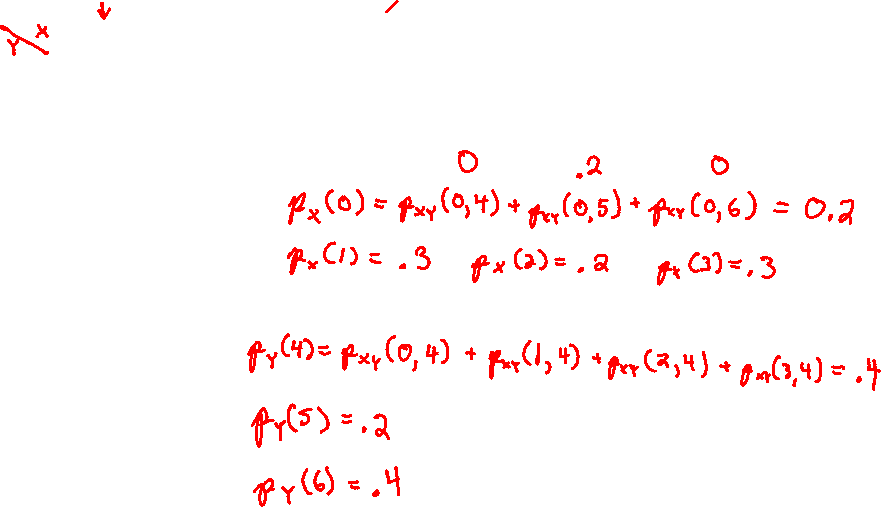 X
Y
0 .2 0
p_X(0) = p_XY(0,4) + p_XY(0,5) + p_XY(0,6) = 0.2
p_X(1) = .3 p_X(2) = .2 p_X(3) = .3
p_Y(4) = p_XY(0,4) + p_XY(1,4) + p_XY(2,4) + p_XY(3,4) = .4
p_Y(5) = .2
p_Y(6) = .4